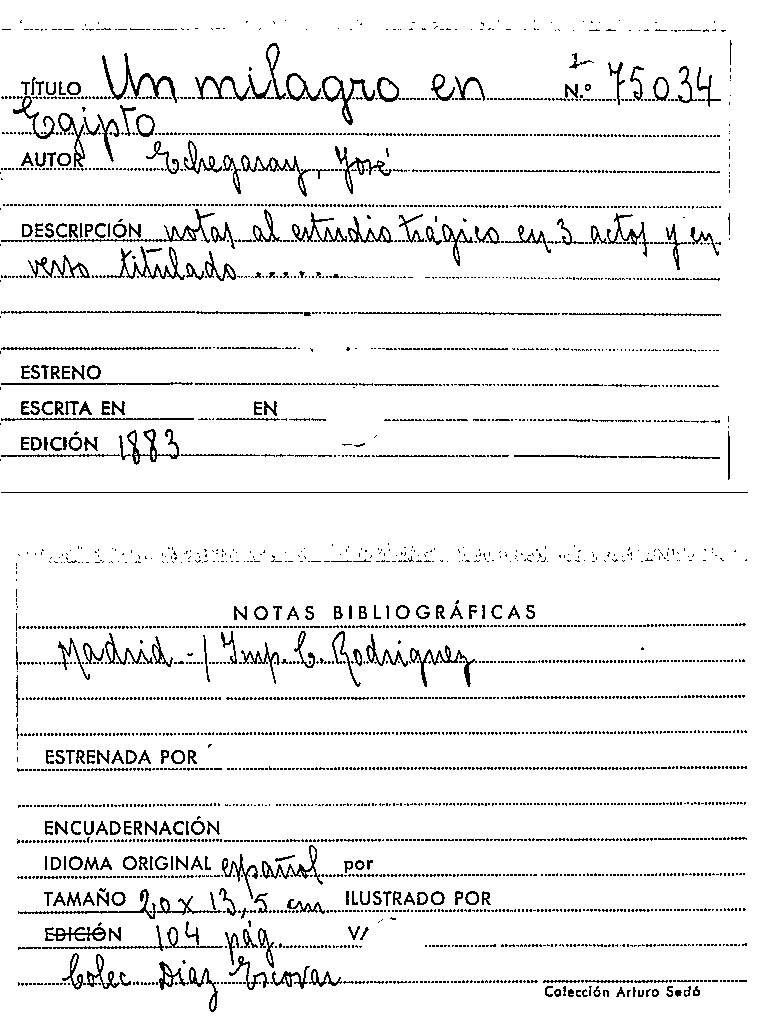 TÍTULO Un milagro en N.º 75034
Egipto
AUTOR Echegaray, José
DESCRIPCIÓN notas al estudio trágico en 3 actos y en
verso titulado ......
ESTRENO
ESCRITA EN EN
EDICIÓN 1883
NOTAS BIBLIOGRÁFICAS
Madrid -/ Imp. C. Rodriguez
ESTRENADA POR
ENCUADERNACIÓN
IDIOMA ORIGINAL español por
TAMAÑO 20 x 13,5 cm ILUSTRADO POR
EDICIÓN 104 pág. V/
Colec. Diaz Escovar
Colección Arturo Sedó